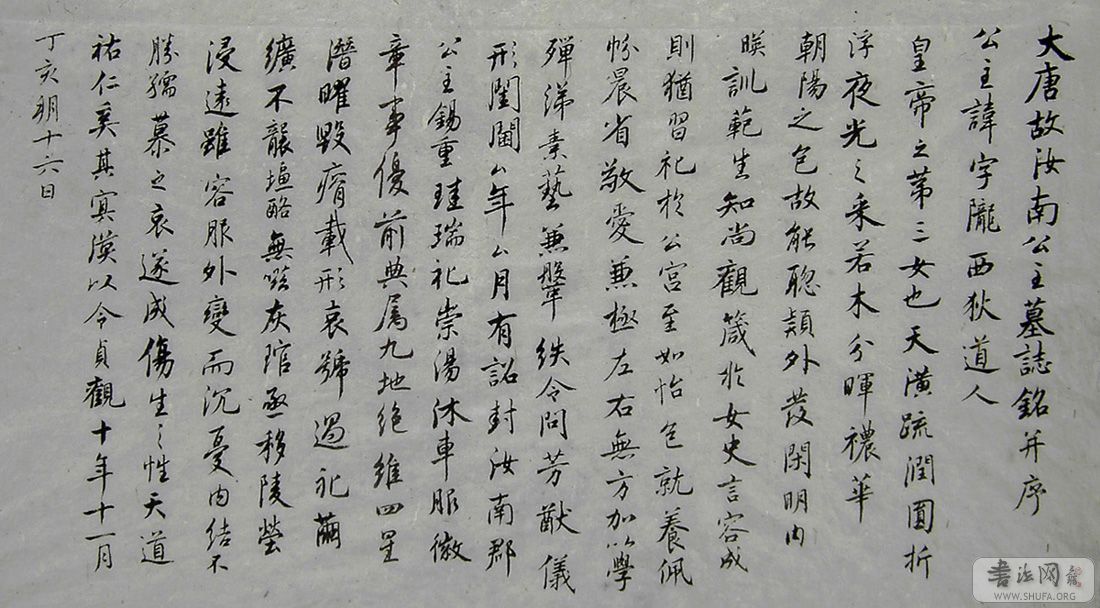 大唐故汝南公主墓誌銘并序
公主諱字隴西狄道人
皇帝之第三女也天潢疏潤圓折
浮夜光之采若木分暉穠華
朝陽之色故能聰穎外發閑明內
暎訓範生知尚觀箴於女史言容成
則猶習祀於公宮至如怡色就養佩
帉晨省敬愛兼極左右無方加以學
殫綈素藝兼鞶紩令問芳猷儀
形閨閫厶年厶月有詔封汝南郡
公主錫重珪瑞祀崇湯沐車服徽
章事優前典属九地絕維四星
潛曜毀瘠載形哀號過礼繭
纊不襲塩酪無嗞灰琯亟移陵塋
浸遠雖容服外變而沉憂內結不
勝孺慕之哀遂成傷生之性天道
祐仁奚其冥漠以今貞觀十年十一月
丁亥朔十六日
書法网
WWW.SHUFA.ORG